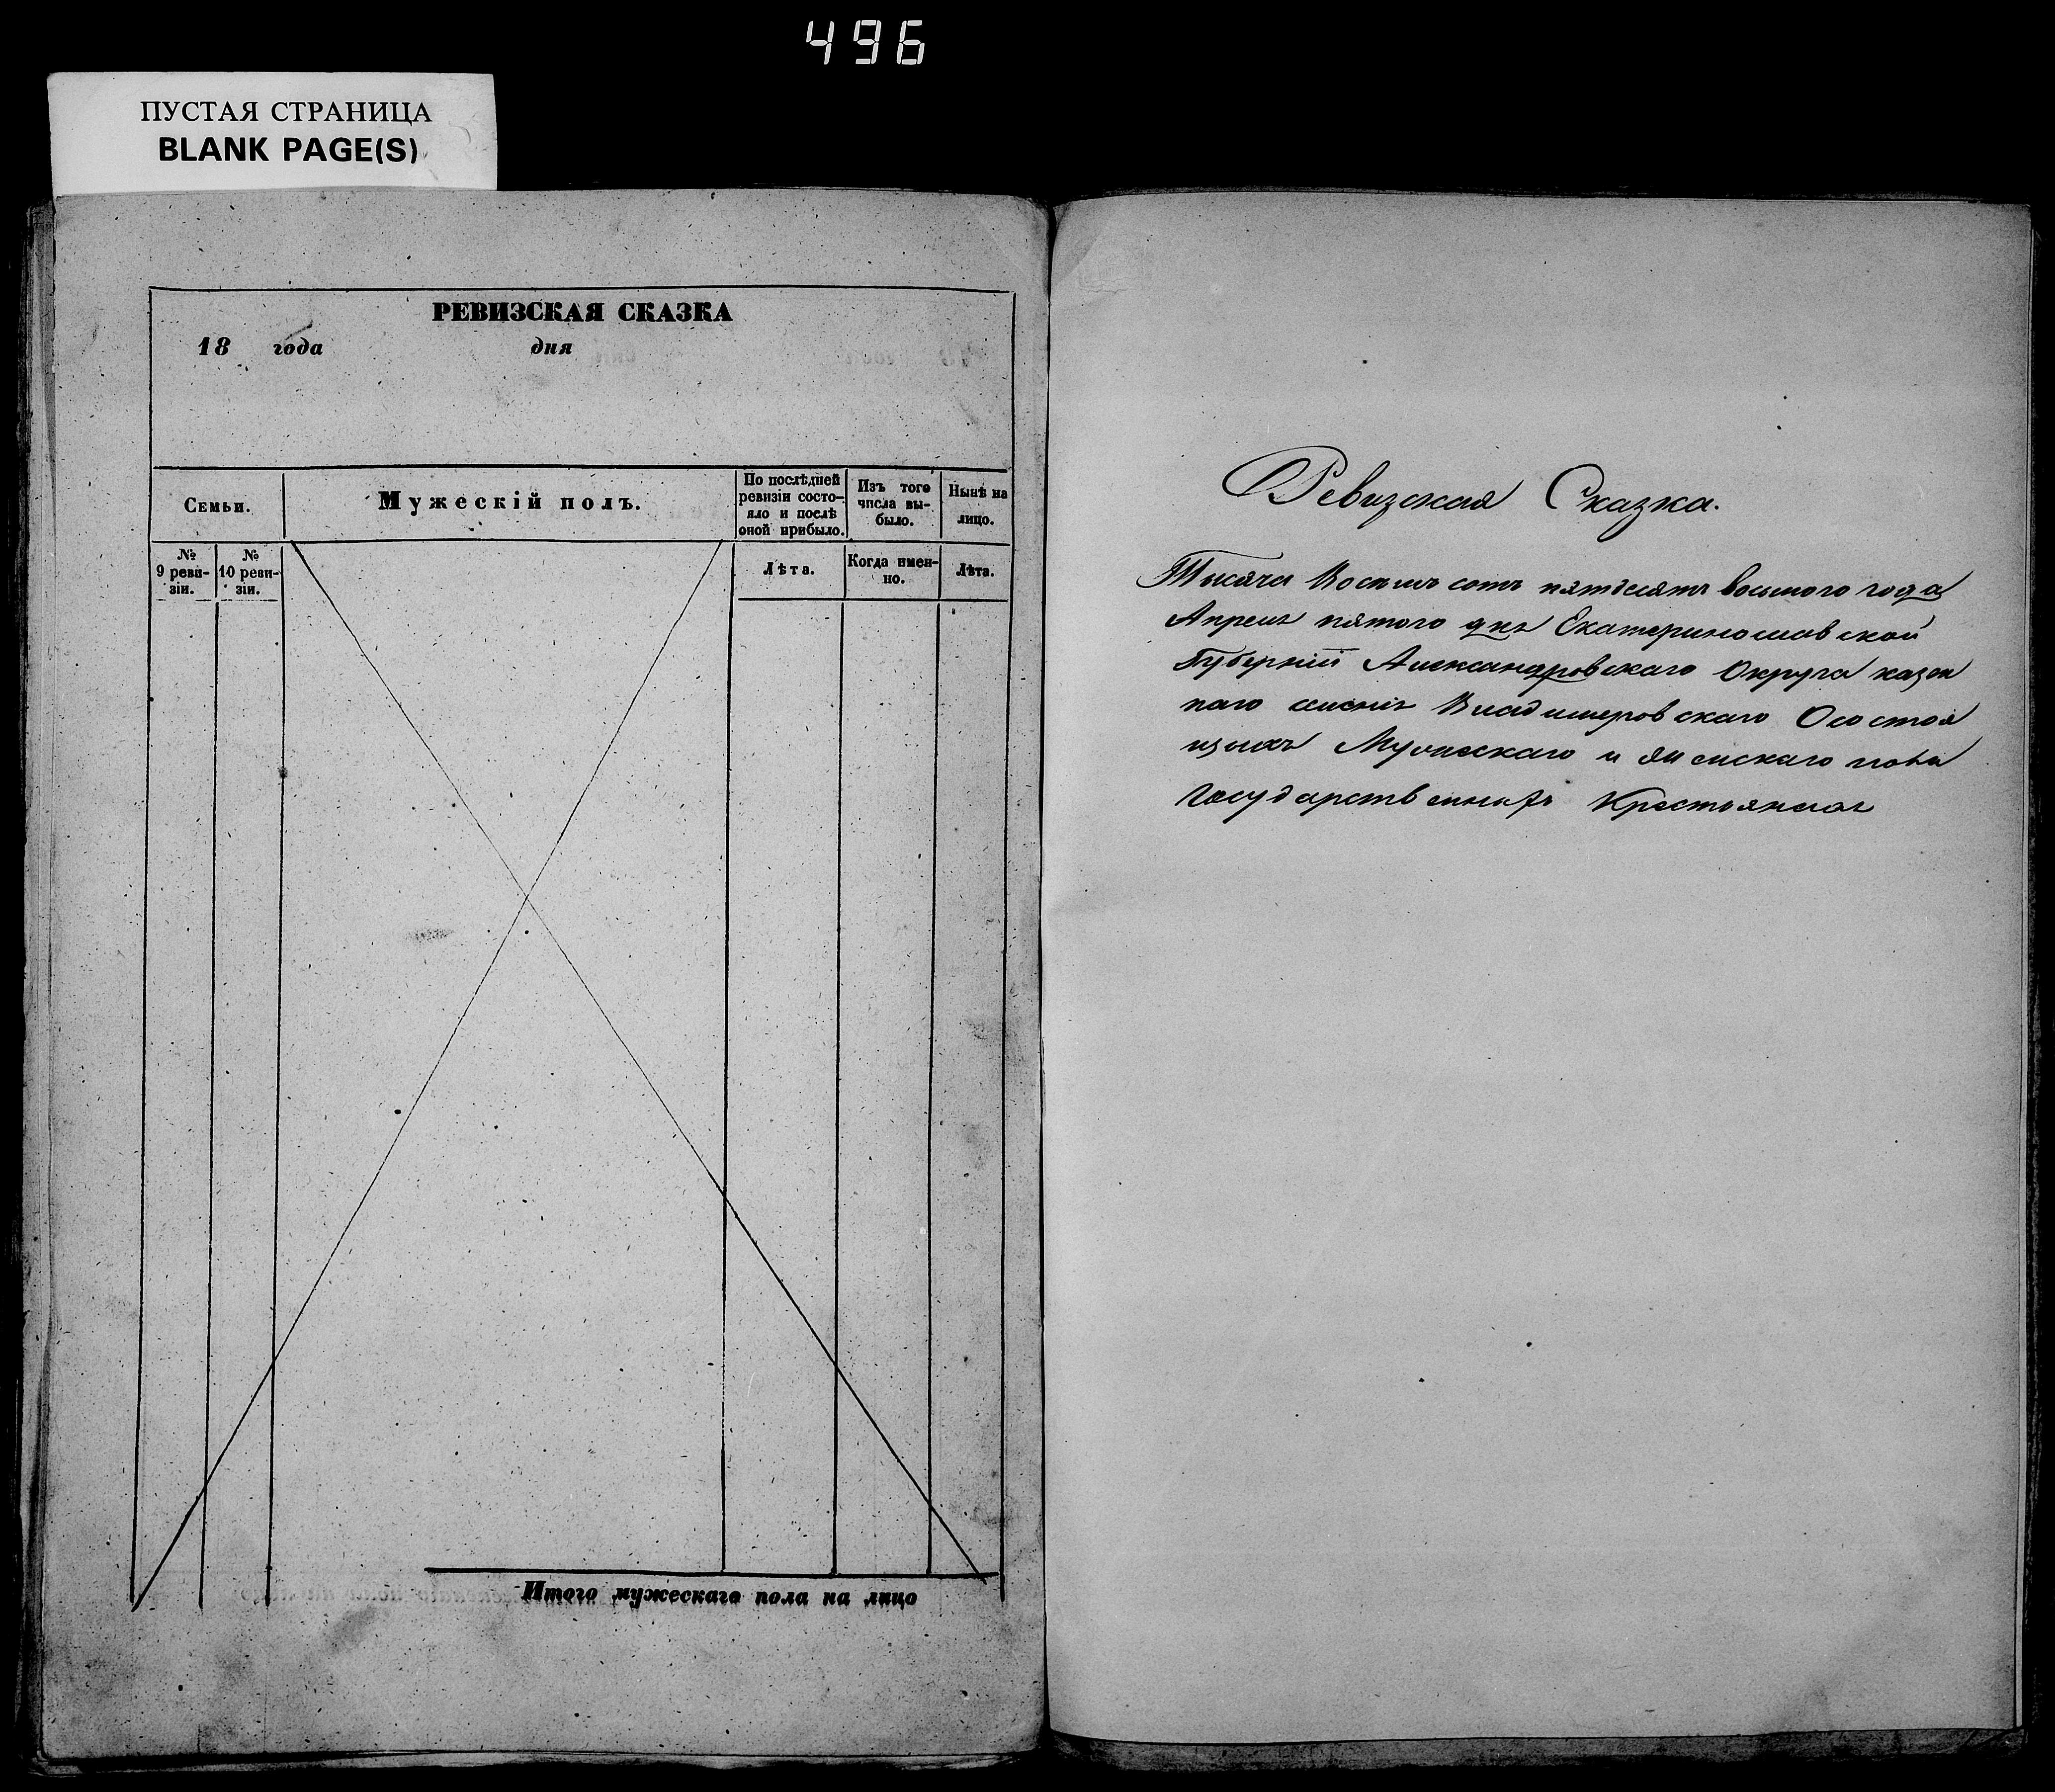 496
ПУСТАЯ СТРАНИЦА
BLANK PAGE(S)
РЕВИЗСКАЯ СКАЗКА
18 года дня
Семьи.
Мужескій полъ.
По послѣдней
ревизіи состо-
яло и послѣ
оной прибыло.
Изъ того
числа вы-
было.
Нынѣ на
лицо.
№
9 реви-
зіи.
№
10 реви-
зіи.
Лѣта.
Когда имен-
но.
Лѣта.
Итого мужескаго пола на лицо
Ревизская Сказка.
Тысяча Восемь сотъ пятдесятъ восьмого года
Апреля пятого дня Екатеринославской
Губерніи Александровскаго Округа казен
наго селенія Владимеровскаго О состоя
щихъ Мужескаго и женскаго пола
Государственныхъ Крестьянахъ